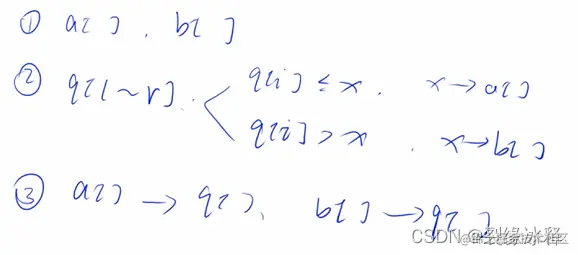 ① a[ ] , b[ ]
② q[l~r] . q[i] ≤ x . x → a[ ]
q[i] > x . x → b[ ]
③ a[ ] → q[ ]、 b[ ] → q[ ]
CSDN @裂缘冰释